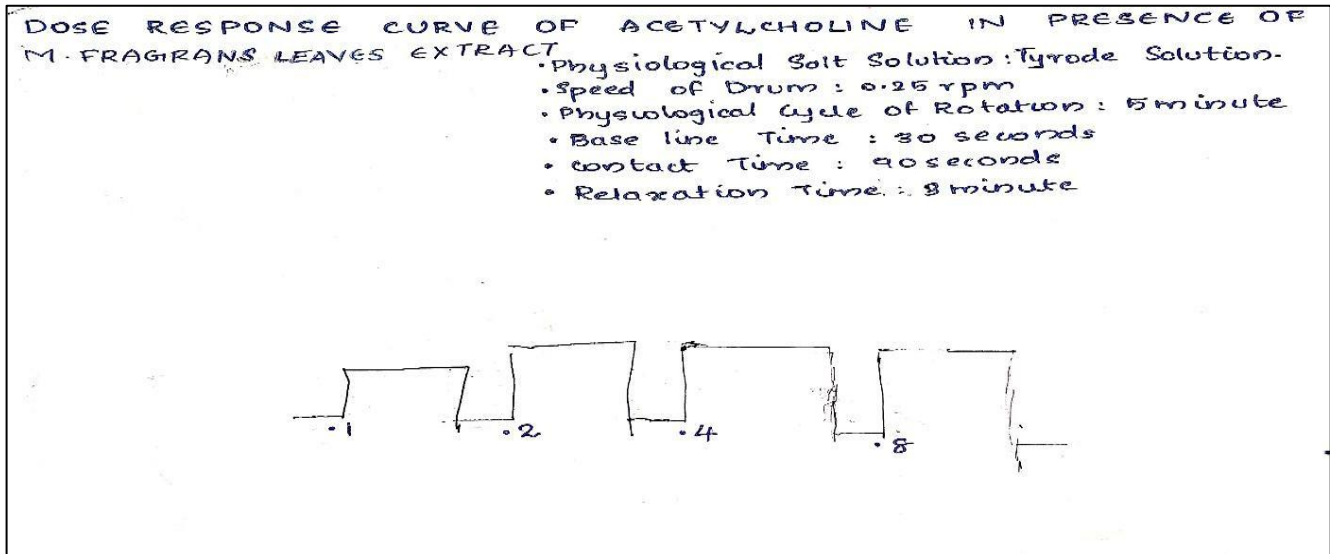 DOSE RESPONSE CURVE OF ACETYLCHOLINE IN PRESENCE OF
M. FRAGRANS LEAVES EXTRACT
• Physiological Salt Solution : Tyrode Solution.
• Speed of Drum : 0.25 rpm
• Physiological Cycle of Rotation : 5 minute
• Base line Time : 30 seconds
• Contact Time : 90 seconds
• Relaxation Time : 3 minute
.1 .2 .4 .8